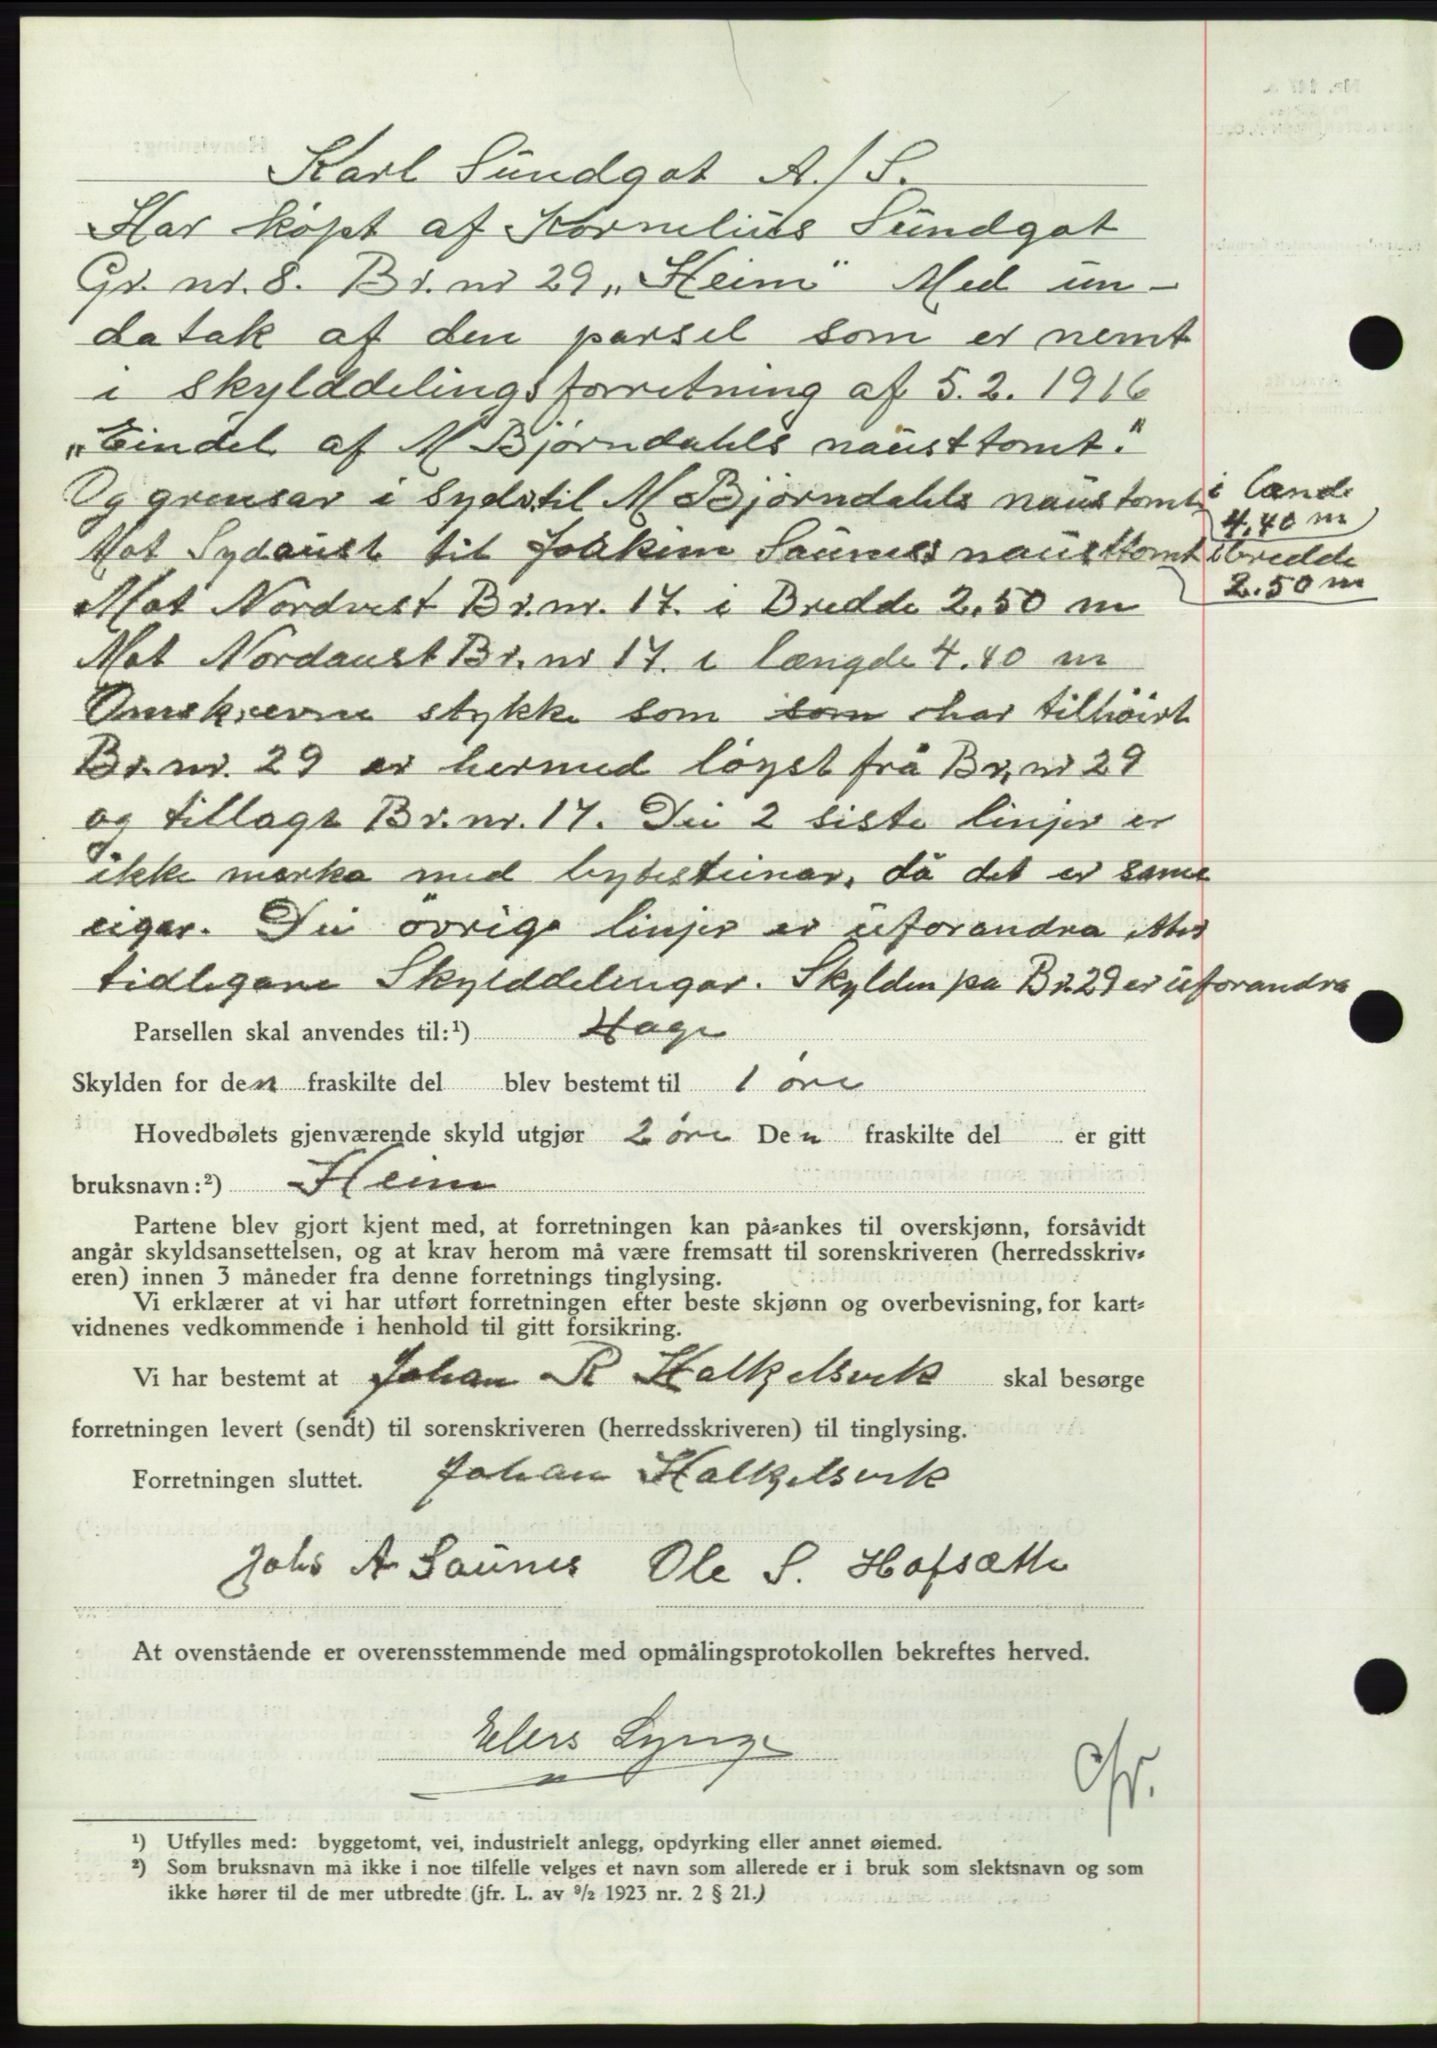 Karl Sundgot A./S.
Har köpt af Kornelius Sundgot
Gr. nr. 8. Br. nr 29 „Heim" Med un-
datak af den parsel som er nemt
i skylddelingsforretning af 5.2. 1916
„Eindel af M Bjørndahls nausttomt."
Og grensar i Syds. til M Bjørndahls naustomt i Lænde
4,40 m
Mot Sydaust til Joakim Saunes nausttomt i bredde
2.50 m
Mot Nordvest Br. nr. 17. i Bredde 2,50 m
Mot Nordaust Br. nr 17. i længde 4.40 m
Omskrevne stykke som som har tilhöirt
Br. nr. 29 er hermed löyst frå Br, nr 29
og tillagt Br. nr. 17. Dei 2 siste linjer er
ikke merka med bytesteinar, då det er same
eigar. Dei övrige linjer er uforandra etter
tidlegare Skylddelingar. Skylden på Br. 29 er uforandra
Parsellen skal anvendes til:¹) Hage
Skylden for den fraskilte del blev bestemt til 1 öre
Hovedbølets gjenværende skyld utgjør 2 öre Den fraskilte del er gitt
bruksnavn:²) Heim
Partene blev gjort kjent med, at forretningen kan på-ankes til overskjønn, forsåvidt
angår skyldsansettelsen, og at krav herom må være fremsatt til sorenskriveren (herredsskriv-
eren) innen 3 måneder fra denne forretnings tinglysing.
Vi erklærer at vi har utført forretningen efter beste skjønn og overbevisning, for kart-
vidnenes vedkommende i henhold til gitt forsikring.
Vi har bestemt at Johan R Halkjelsvik skal besørge
forretningen levert (sendt) til sorenskriveren (herredsskriveren) til tinglysing.
Forretningen sluttet. Johan Halkjelsvik
Johs A Saunes Ole S. Hofsæth
At ovenstående er overensstemmende med opmålingsprotokollen bekreftes herved.
Elers Lynge
¹) Utfylles med: byggetomt, vei, industrielt anlegg, opdyrking eller annet øiemed.
²) Som bruksnavn må ikke i noe tilfelle velges et navn som allerede er i bruk som slektsnavn og som
ikke hører til de mer utbredte (jfr. L. av ⁹/₂ 1923 nr. 2 § 21.)